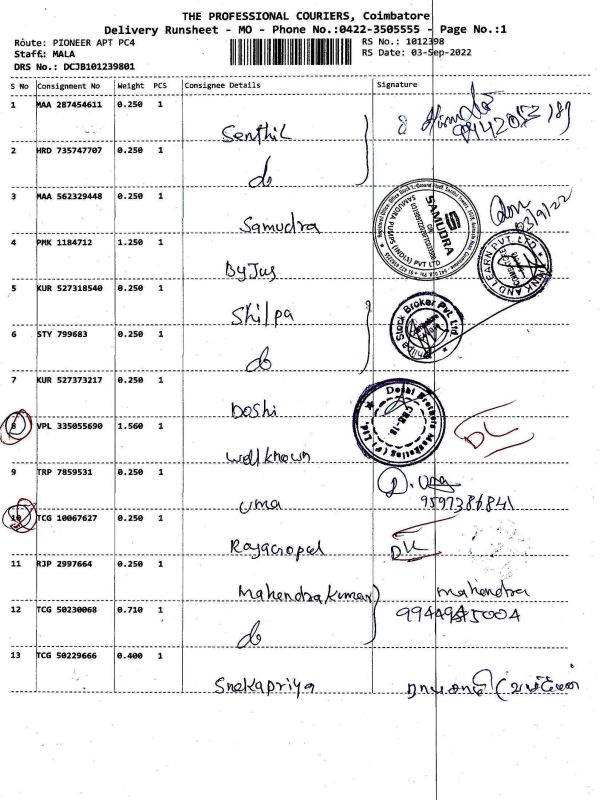 THE PROFESSIONAL COURIERS, Coimbatore
Delivery Runsheet - MO - Phone No.:0422-3505555 - Page No.:1
Route: PIONEER APT PC4 RS No.: 1012398
Staff: MALA RS Date: 03-Sep-2022
DRS No.: DCJB101239801
S No Consignment No Weight PCS Consignee Details Signature
1 MAA 287454611 0.250 1 Senthil
2 HRD 735747707 0.250 1 do
3 MAA 562329448 0.250 1 Samudra SAMUDRA 03/9/22
4 PMK 1184712 1.250 1 ByJus THINK AND LEARN PVT. LTD
5 KUR 527318540 0.250 1 Shilpa Shilpa Stock Broker Pvt. Ltd.
6 STY 799683 0.250 1 do
7 KUR 527373217 0.250 1 Doshi Doshi Brothers Marketing (P) Ltd. CBE-18
8 VPL 335055690 1.560 1 Wellknown DL
9 TRP 7859531 0.250 1 Uma D. Uma
9597386841
10 TCG 10067627 0.250 1 Rajagopal DL
11 RJP 2997664 0.250 1 Mahendrakumar mahendra
12 TCG 50230068 0.710 1 do
13 TCG 50229666 0.400 1 Snekapriya